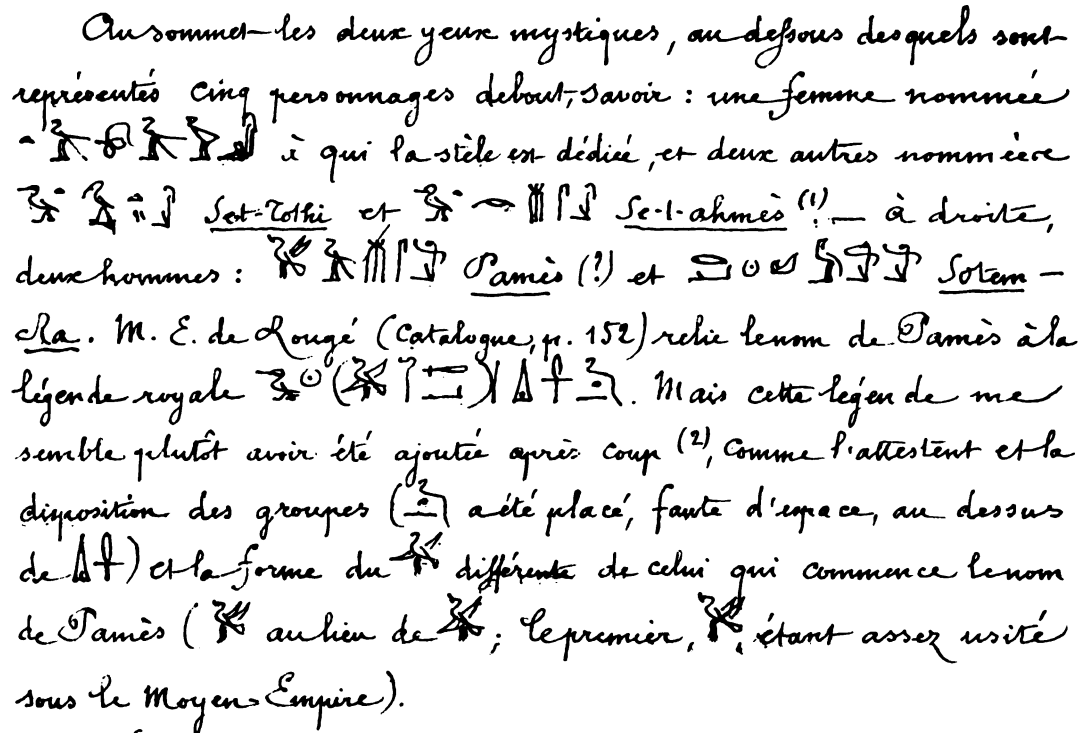 Au sommet les deux yeux mystiques, au dessous desquels sont
représentés cinq personnages debout, savoir : une femme nommée
à qui la stèle est dédiée, et deux autres nommées
Set-Tothi et Se-t-ahmès (1)? — à droite,
deux hommes : Pamès (?) et Sotem-
Ra. M. E. de Rougé (Catalogue, p. 152) relie le nom de Pamès à la
légende royale ( ) . Mais cette légende me
semble plutôt avoir été ajoutée après coup (2), comme l'attestent et la
disposition des groupes ( a été placé, faute d'espace, au dessus
de ) et la forme du différente de celui qui commence le nom
de Pamès ( au lieu de ; le premier, , étant assez usité
sous le Moyen-Empire).